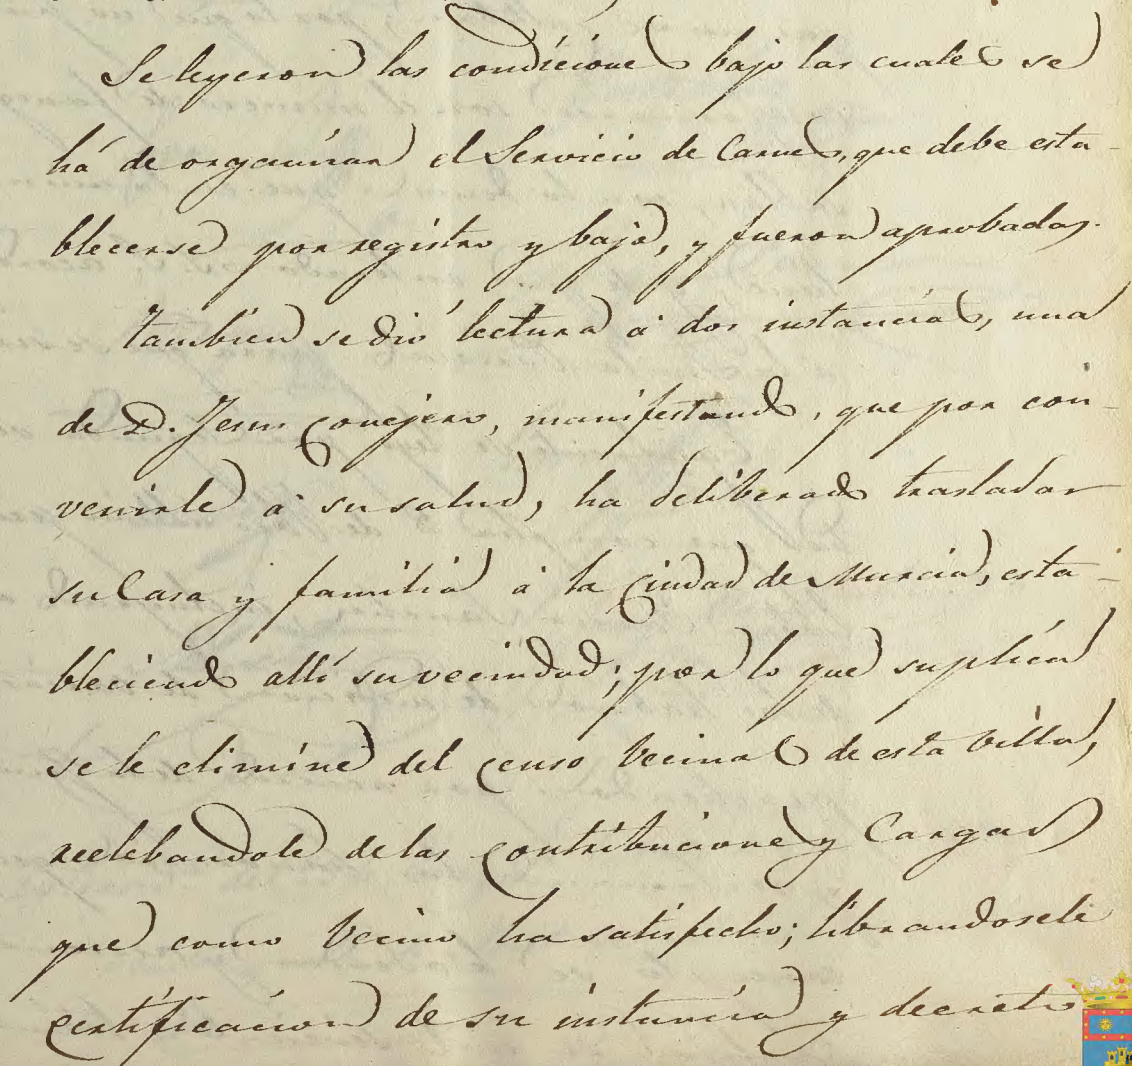 Se leyeron las condiciones bajo las cuales se
há de organizar el Servicio de Carnes, que debe esta-
blecerse por registro y baja, y fueron aprobadas.
Tambien se dió lectura á dos instancias, una
de D. Jesus Conejero, manifestando, que por con-
venirle á su salud, ha deliberado trasladar
su Casa y familia á la Ciudad de Murcia, esta-
bleciendo allí su vecindad; por lo que suplica
se le elimine del censo Vecinal de esta Villa,
reelebandole de las Contribuciones y Cargas
que como Vecino ha satisfecho; librandosele
certificacion de su instancia y decreto